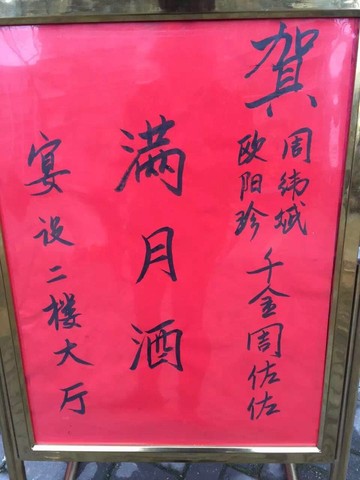 贺
周纬斌
欧阳珍
千金周佑佑
满月酒
宴设二楼大厅